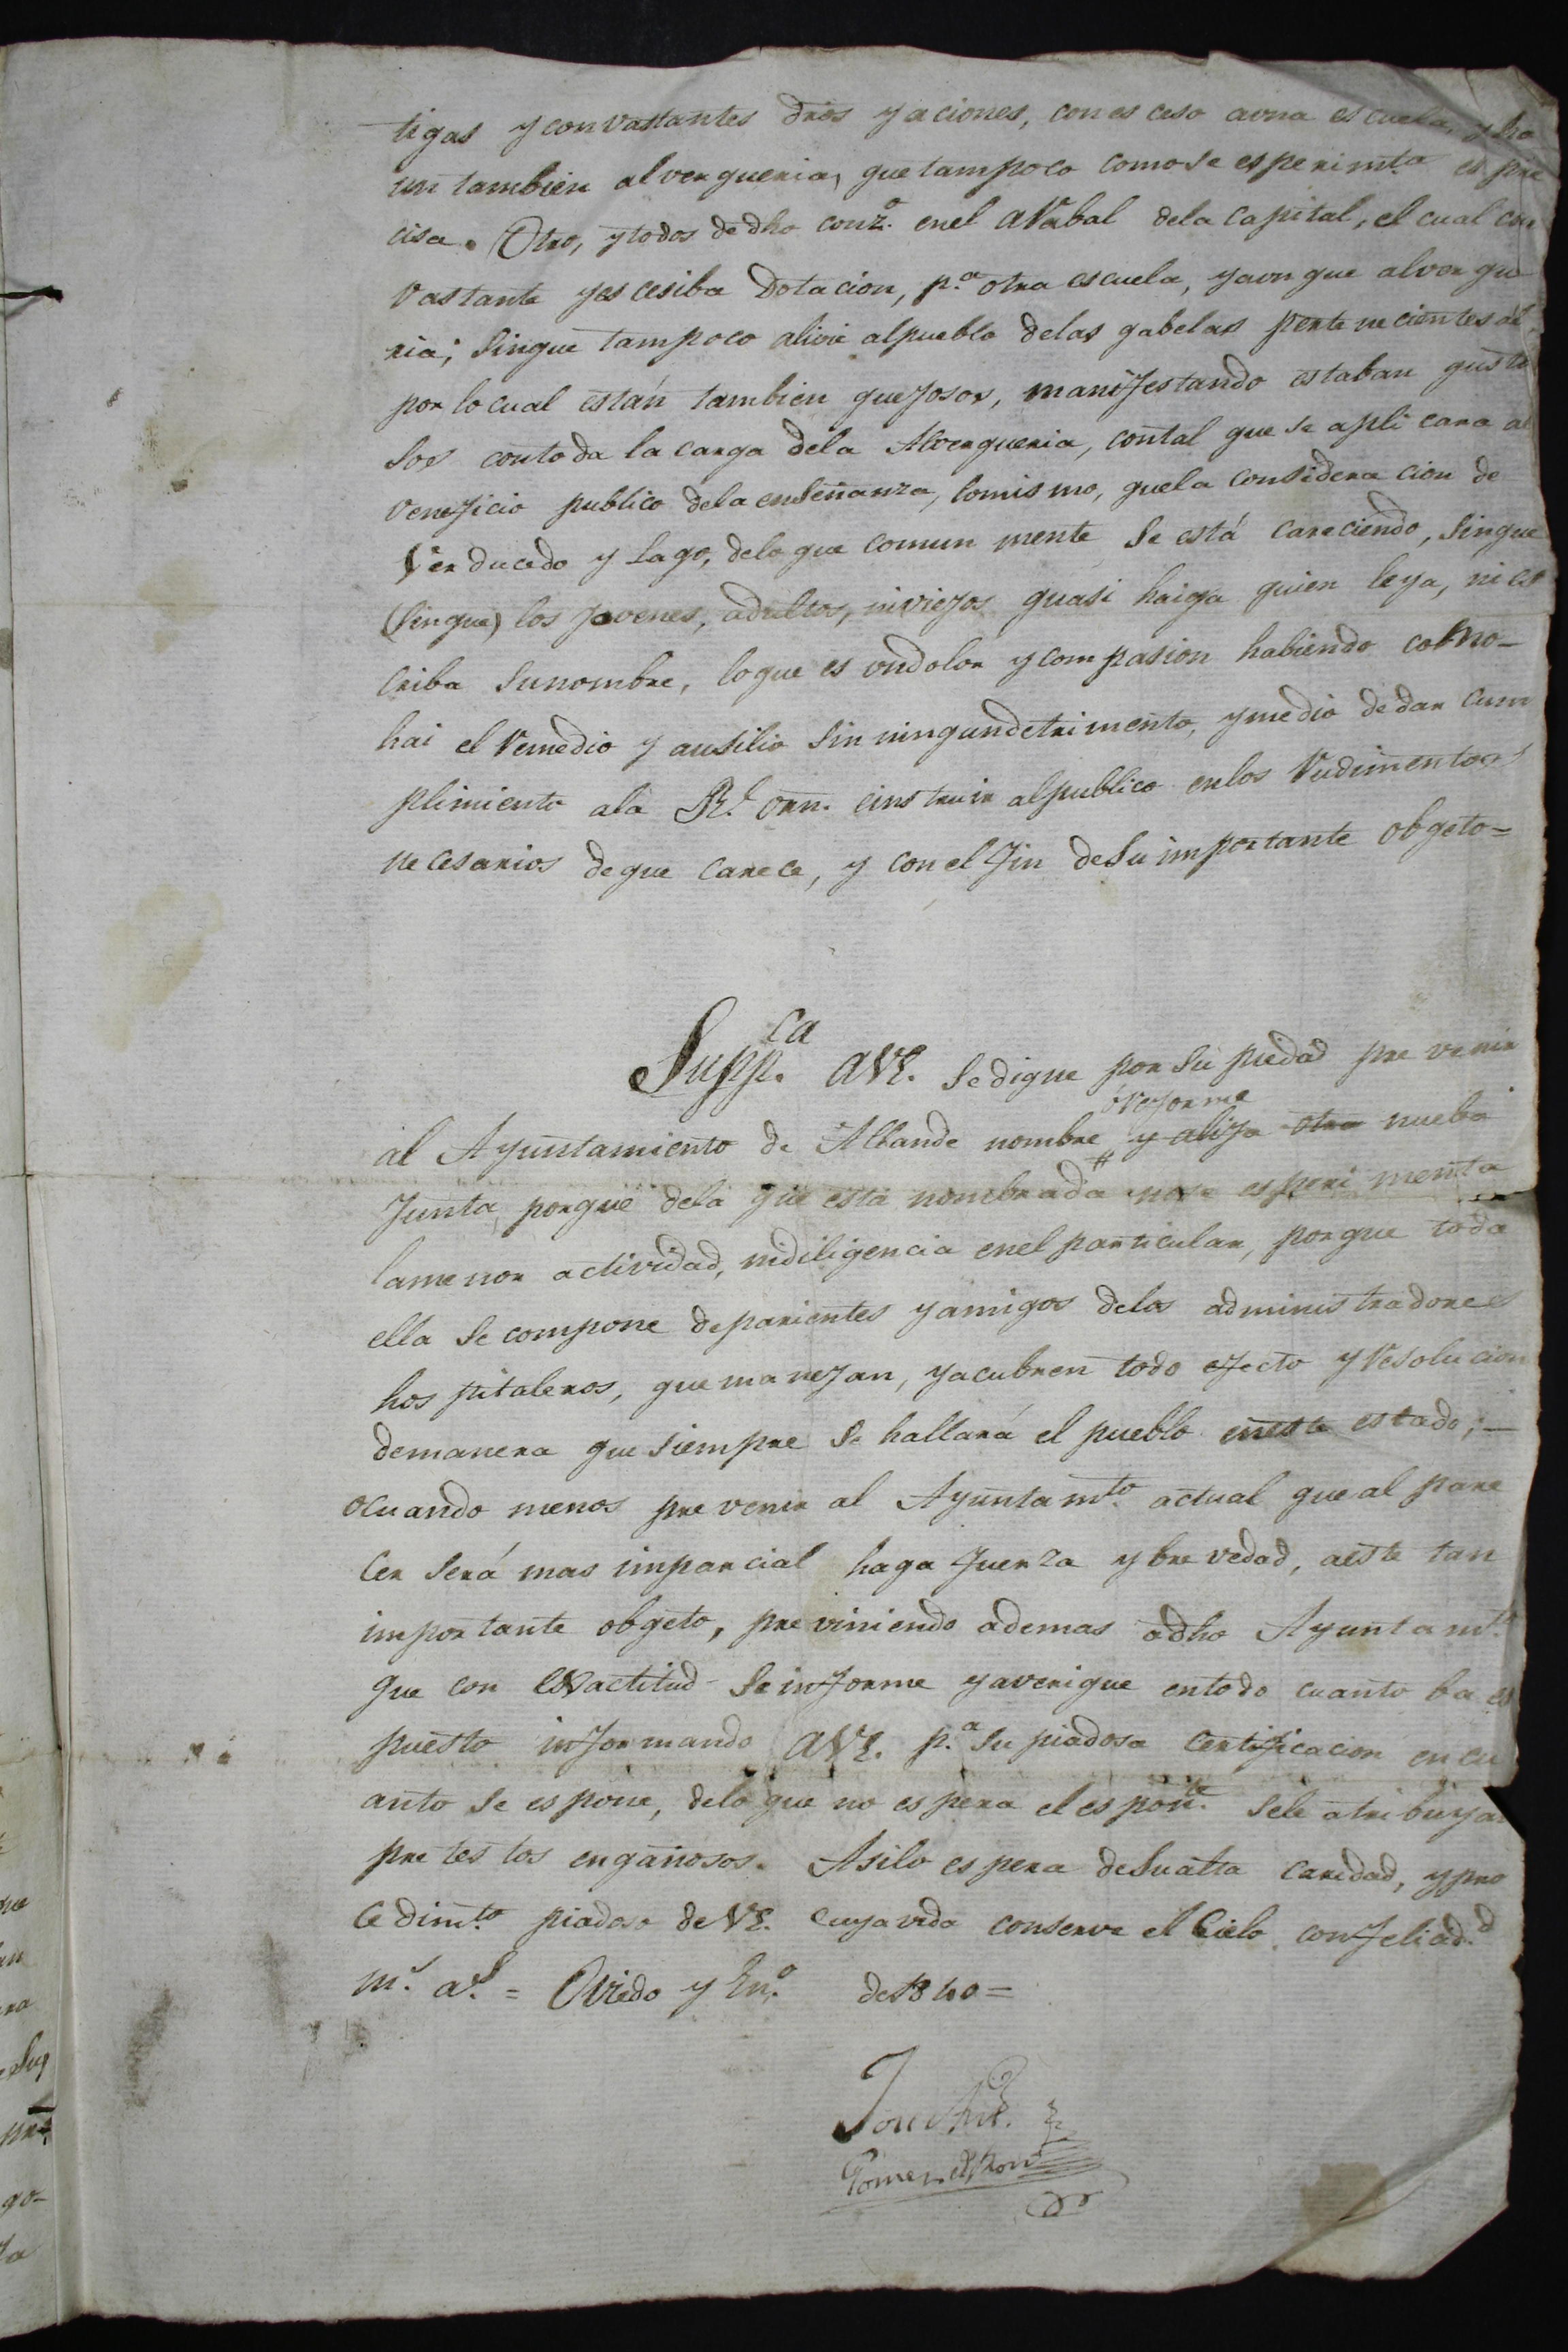 tigas y con vastantes dros y aciones, con es ceso a vna escuela, y ha
un tambien alvergueria, que tampoco como se esperimta es pre
cisa. Otro, y todos de dho conzo. en el aVabal de la Capital, el cual con
vastante y escesiba Dotacion, pa. otra escuela, y aun que alvergue
ria; sin que tampoco alivie al pueblo de las gabelas pertenecientes al
por lo cual están tambien quejosos, manifestando estaban gusto
sos con toda la carga de la Alvergueria, con tal que se apli cara al
veneficio publico de la enseñanza, lo mismo, que la Consideracion de
Verducedo y Lago, de lo que comun mente se está careciendo, sin que
(sin que) los jovenes, adultos, ni viejos quasi haiga quien leya, ni es
criba su nombre, lo que es un dolor y compasion habiendo como
hai el Vemedio y ausilio sin ningun detrimento, y medio de dar cum
plimiento a la Rl. orn. e instruir al publico en los Vudimentos
necesarios de que carece, y con el fin de su importante obgeto=
Suppca. A VE. se digne por su piedad pre venir
óVeforme
al Ayuntamiento de Allande nombre y alija otra nueba
Junta porque de la que está nombrada # no se esperi menta
la menor actividad, ni diligencia en el particular, porque toda
ella se compone de parientes y amigos de los administradores
hospitaleros, que manejan, y acubren todo efecto y Vesolucion
de manera que siempre se hallará el pueblo en este estado;
o cuando menos pre venir al Ayuntamto. actual que al pare
cer será mas imparcial haga fuerza y bre vedad, a este tan
importante obgeto, pre viniendo ademas a dho Ayuntamto.
que con exactitud se informe y averigue en todo cuanto ba es
puesto informando A VE. pa. su piadosa Certificacion en cu
anto se espone, de lo que no espera el esponte. se le atribuyan
pretestos engañosos. Asi lo espera de su alta caridad, y pro
cedimto. piadoso de VE. cuya vida conserve el Cielo con felicidd.
ms. as. = Oviedo y Eno. de 1840=